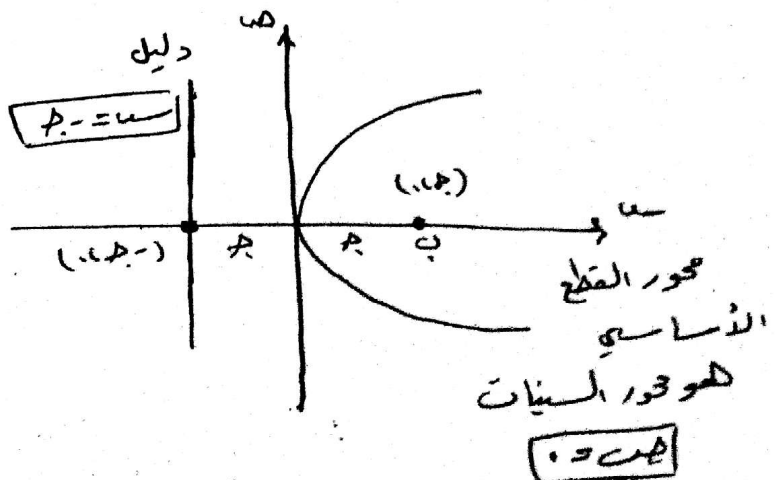 ص
دليل
س = -جـ
(جـ، ٠)
س
(-جـ، ٠)
جـ
جـ
ب
محور القطع
الأساسي
هو محور السينات
ص = ٠